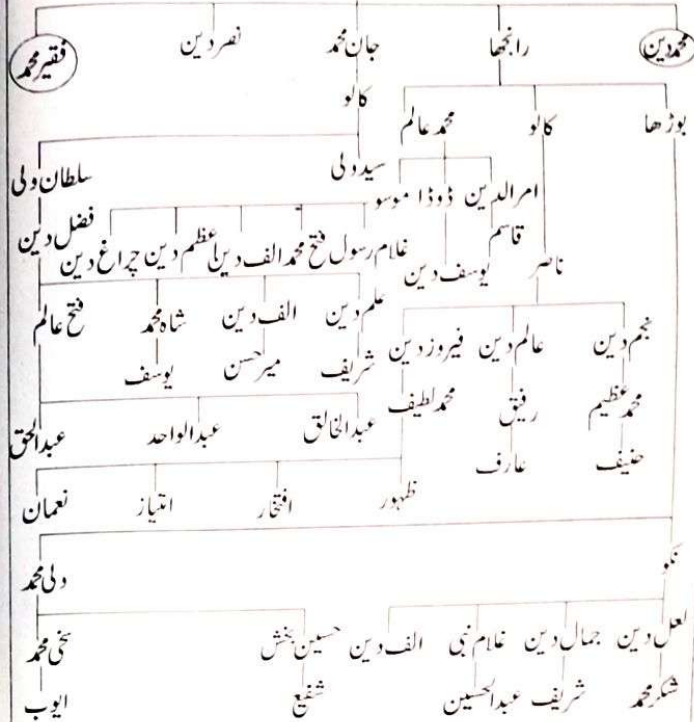 محمد دین رانجھا جان محمد نصر دین فقیر محمد
بوڑھا کالو محمد عالم کالو
سید ولی سلطان ولی
امر الدین ڈوڈا موسو
قاسم یوسف دین
ناصر
غلام رسول فتح محمد الف دین اعظم دین چراغ دین فضل دین
نجم دین عالم دین فیروز دین علم دین الف دین شاہ محمد فتح عالم
محمد عظیم رفیق محمد لطیف شریف میر حسن یوسف
حنیف عارف عبدالخالق عبدالواحد عبدالحق
ظہور افتخار امتیاز نعمان
نکو ولی محمد
لعل دین جمال دین غلام نبی الف دین حسین بخش سخی محمد
شکر محمد شریف عبدالحسین شفیع ایوب